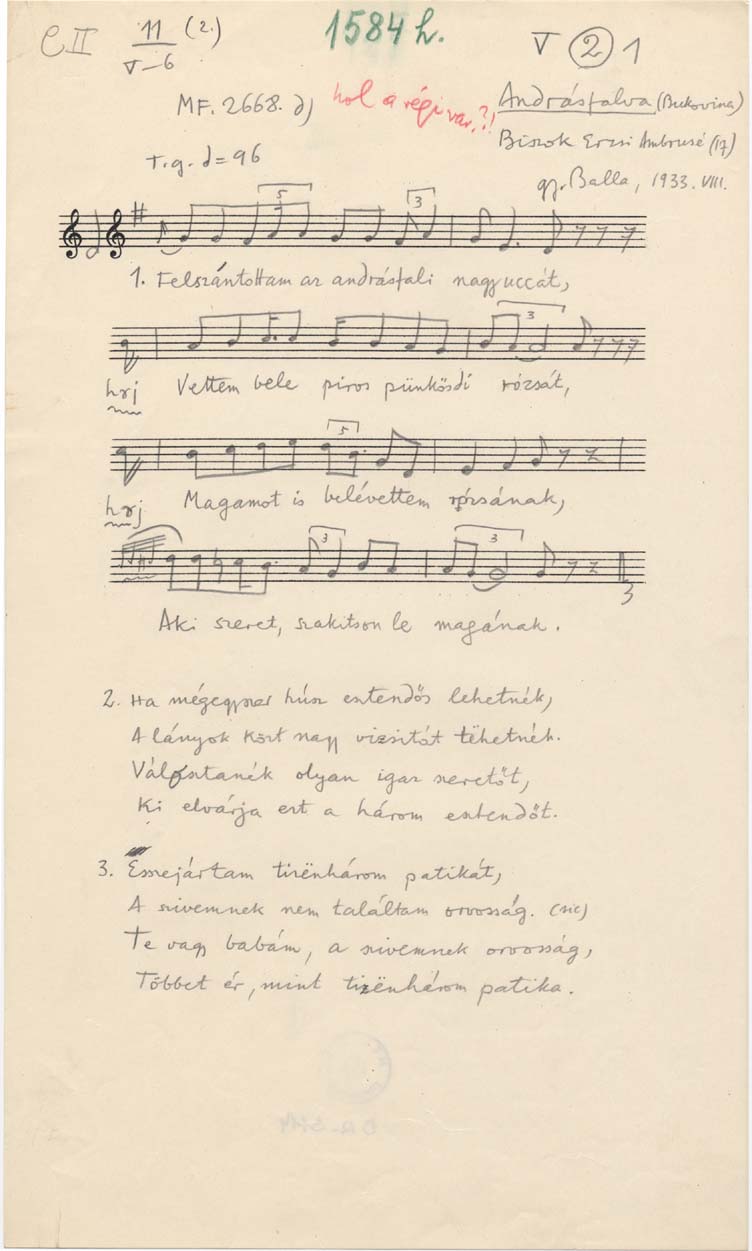 C II 11/V-6 (2.) 1584 h. V 2 1
MF. 2668. d) hol a régi var.?! Andrásfalva (Bukovina)
Biszok Erzsi Ambrusé (17)
T.g. ♩=96
gy. Balla, 1933. VIII.
5 3
1. Felszántottam az andrásfali nagyuccát,
3
hrj Vettem bele piros pünkösdi rózsát,
5
hrj Magamot is belévettem rózsának,
3 3
3
Aki szeret, szakitson le magának.
2. Ha mégegyszer húsz esztendős lehetnék,
A lányok közt nagy vizsitót tëhetnék.
Válosztanék olyan igaz szeretőt,
Ki elvárja ezt a három esztendőt.
3. Esszejártam tizënhárom patikát,
A szivemnek nem találtam orvosság. (sic)
Te vagy babám, a szivemnek orvosság,
Többet ér, mint tizënhárom patika.